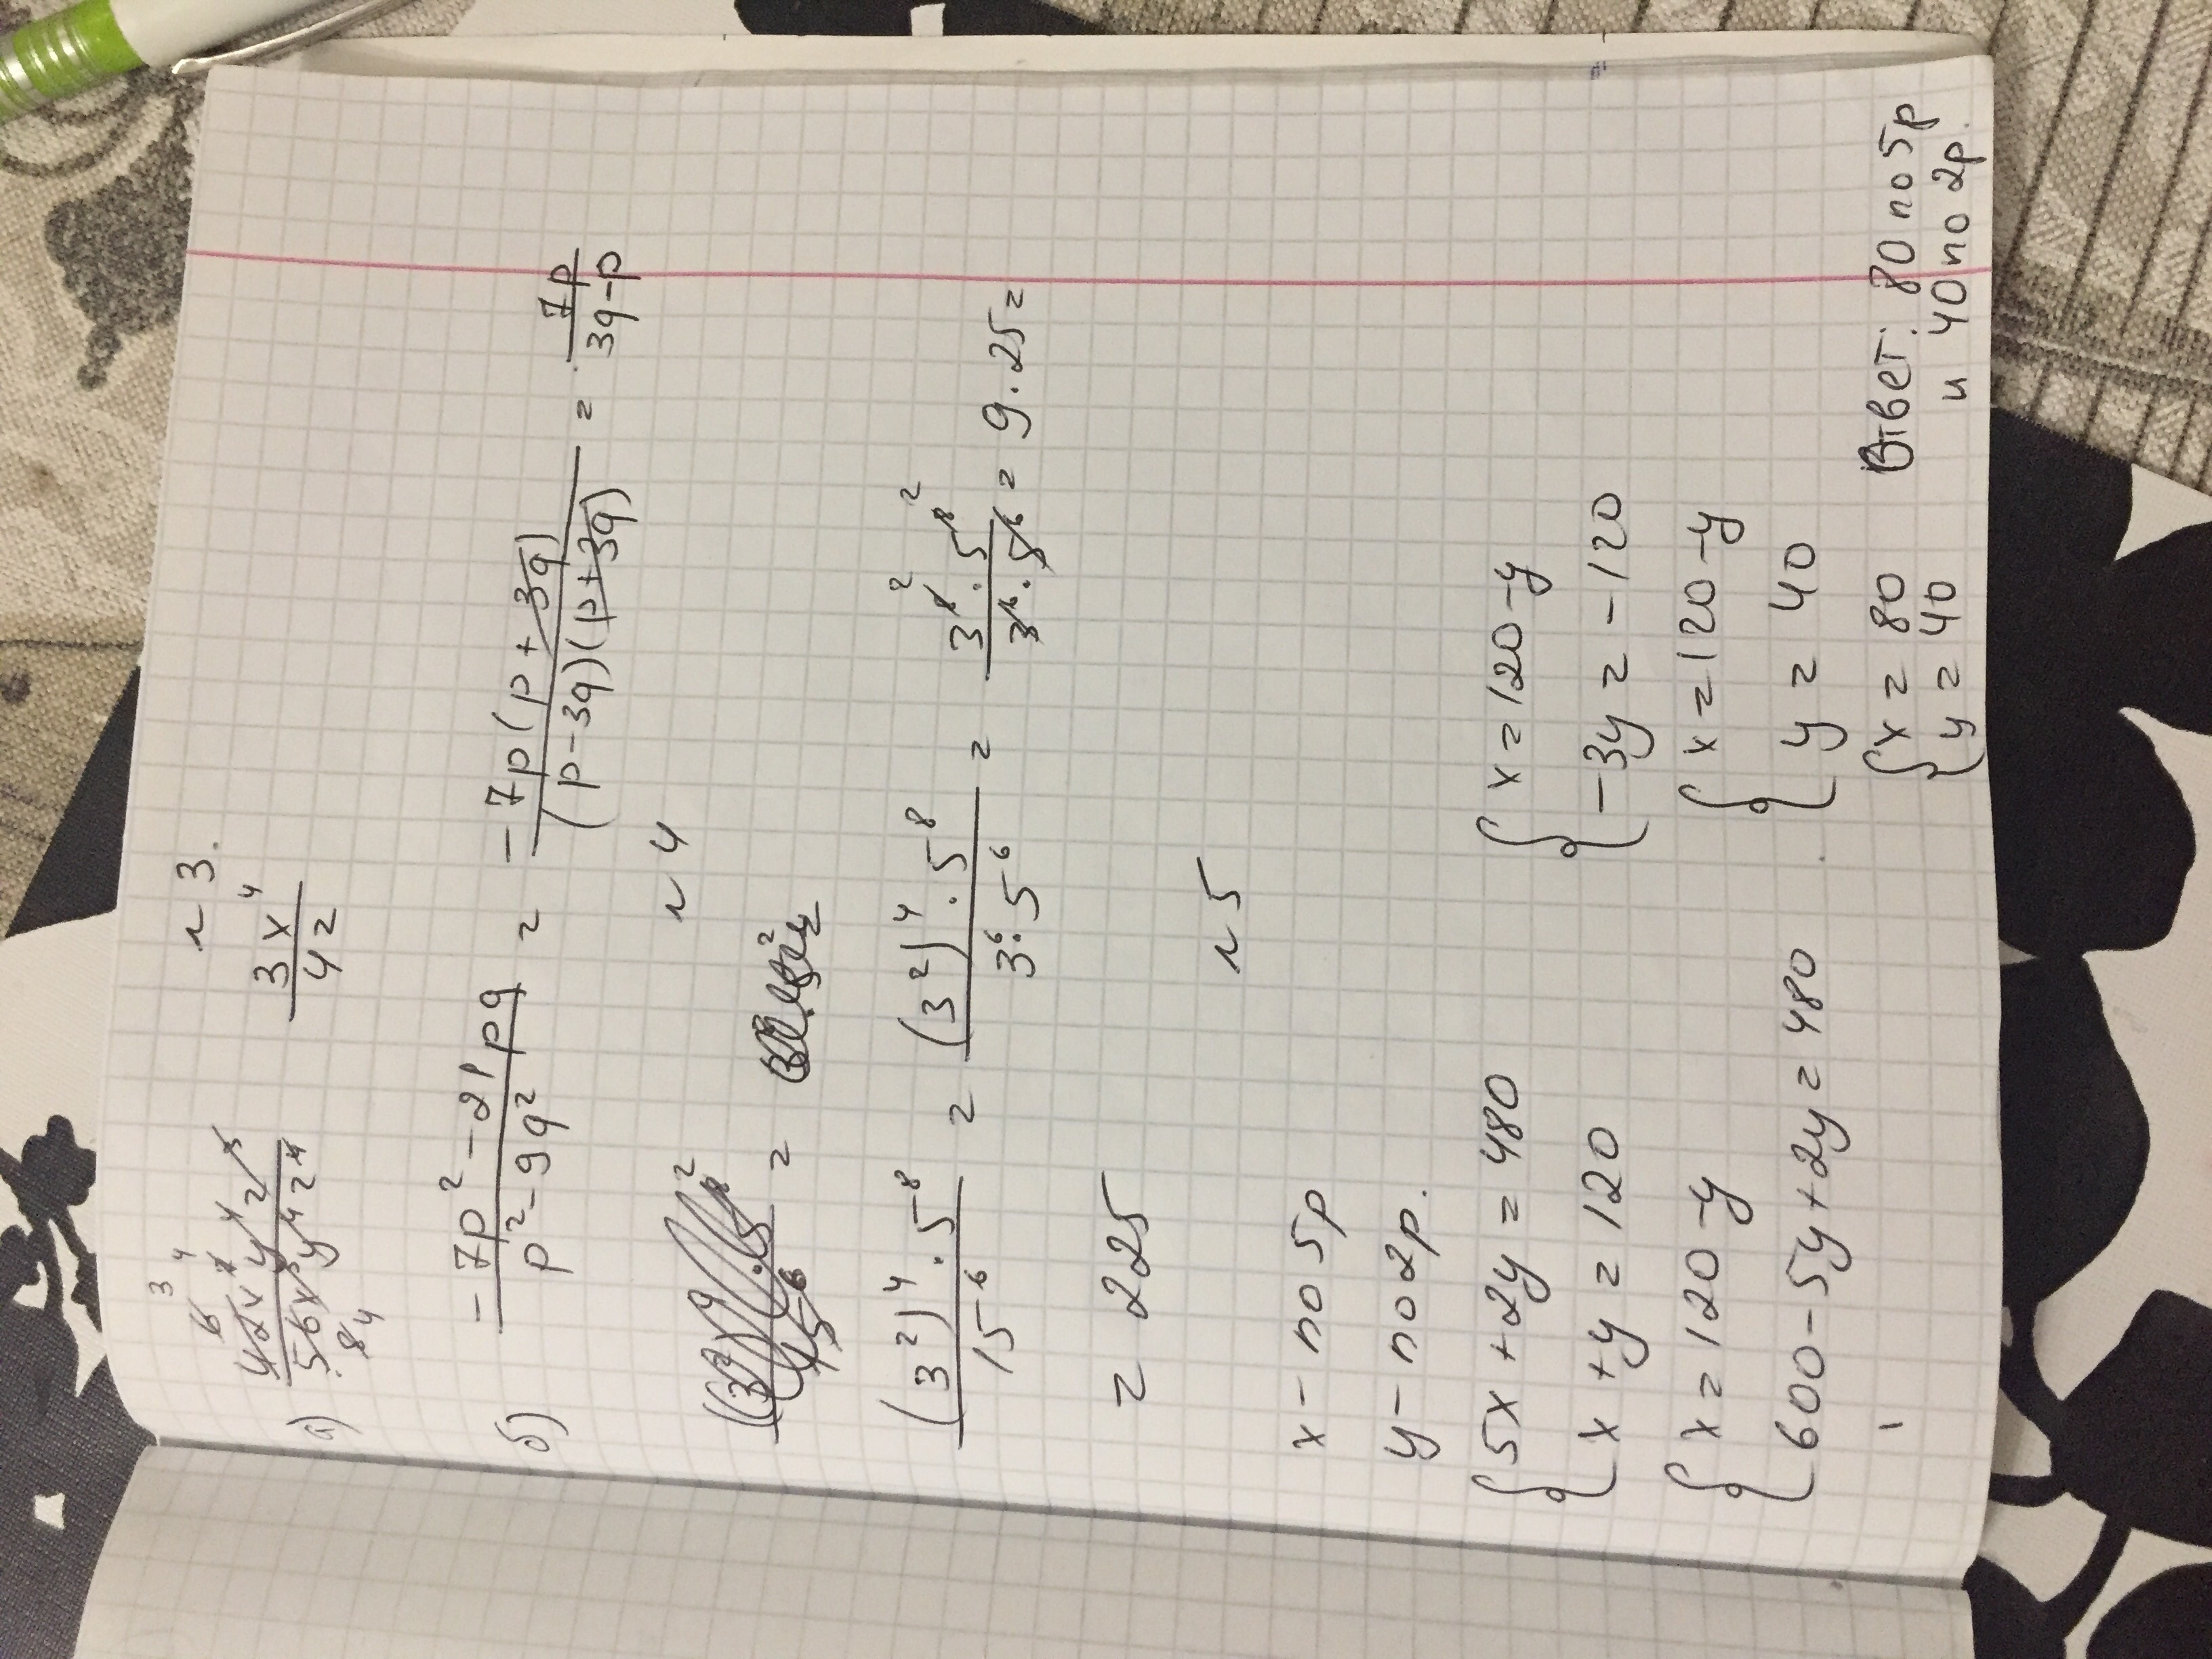 № 3.
а) 42x⁷y⁴z⁵ / 56x³y⁴z⁴ 6 3 4 8 4 3x⁴ / 4z
б) -7p² - 21pq / p² - 9q² = -7p(p + 3q) / (p - 3q)(p + 3q) = 7p / 3q - p
№ 4
(3²)⁴ · 5⁸ / 15⁶ = (3²)⁴ · 5⁸ / 3⁶ · 5⁶ = 3⁸ ² · 5⁸ ² / 3⁶ · 5⁶ = 9 · 25 =
= 225
№ 5
x - по 5р
y - по 2р.
{ 5x + 2y = 480
x + y = 120
{ x = 120 - y
600 - 5y + 2y = 480
{ x = 120 - y
-3y = -120
{ x = 120 - y
y = 40
{ x = 80
y = 40
Ответ: 80 по 5р
и 40 по 2р.